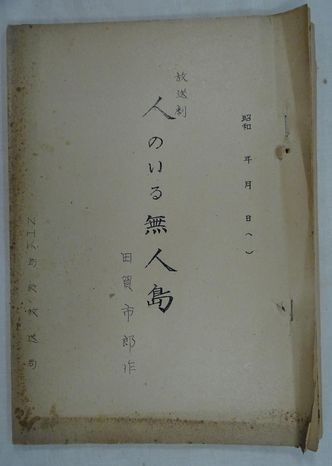 昭和 年 月 日( )
放送劇
人のいる無人島
田賀市郎作
NHK